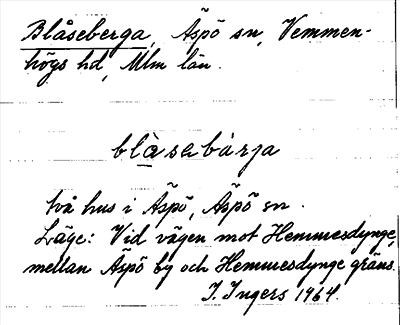 Blåseberga, Äspö sn, Vemmen-
högs hd, Mlm län.
blàsabàrja
två hus i Äspö, Äspö sn.
Läge: Vid vägen mot Hemmesdynge,
mellan Äspö by och Hemmesdynge gräns.
I. Ingers 1964.